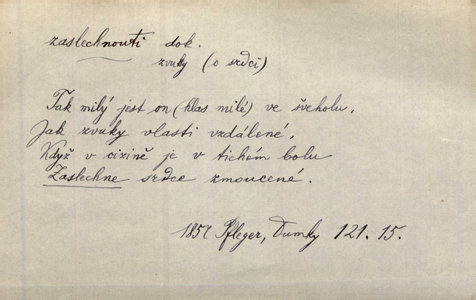 zaslechnouti dok.
zvuky (o srdci)
Tak milý jest on (hlas milé) ve šveholu,
Jak zvuky vlasti vzdálené,
Když v cizině je v tichém bolu
Zaslechne srdce zmoucené.
1857 Pfleger, Dumky 121. 15.